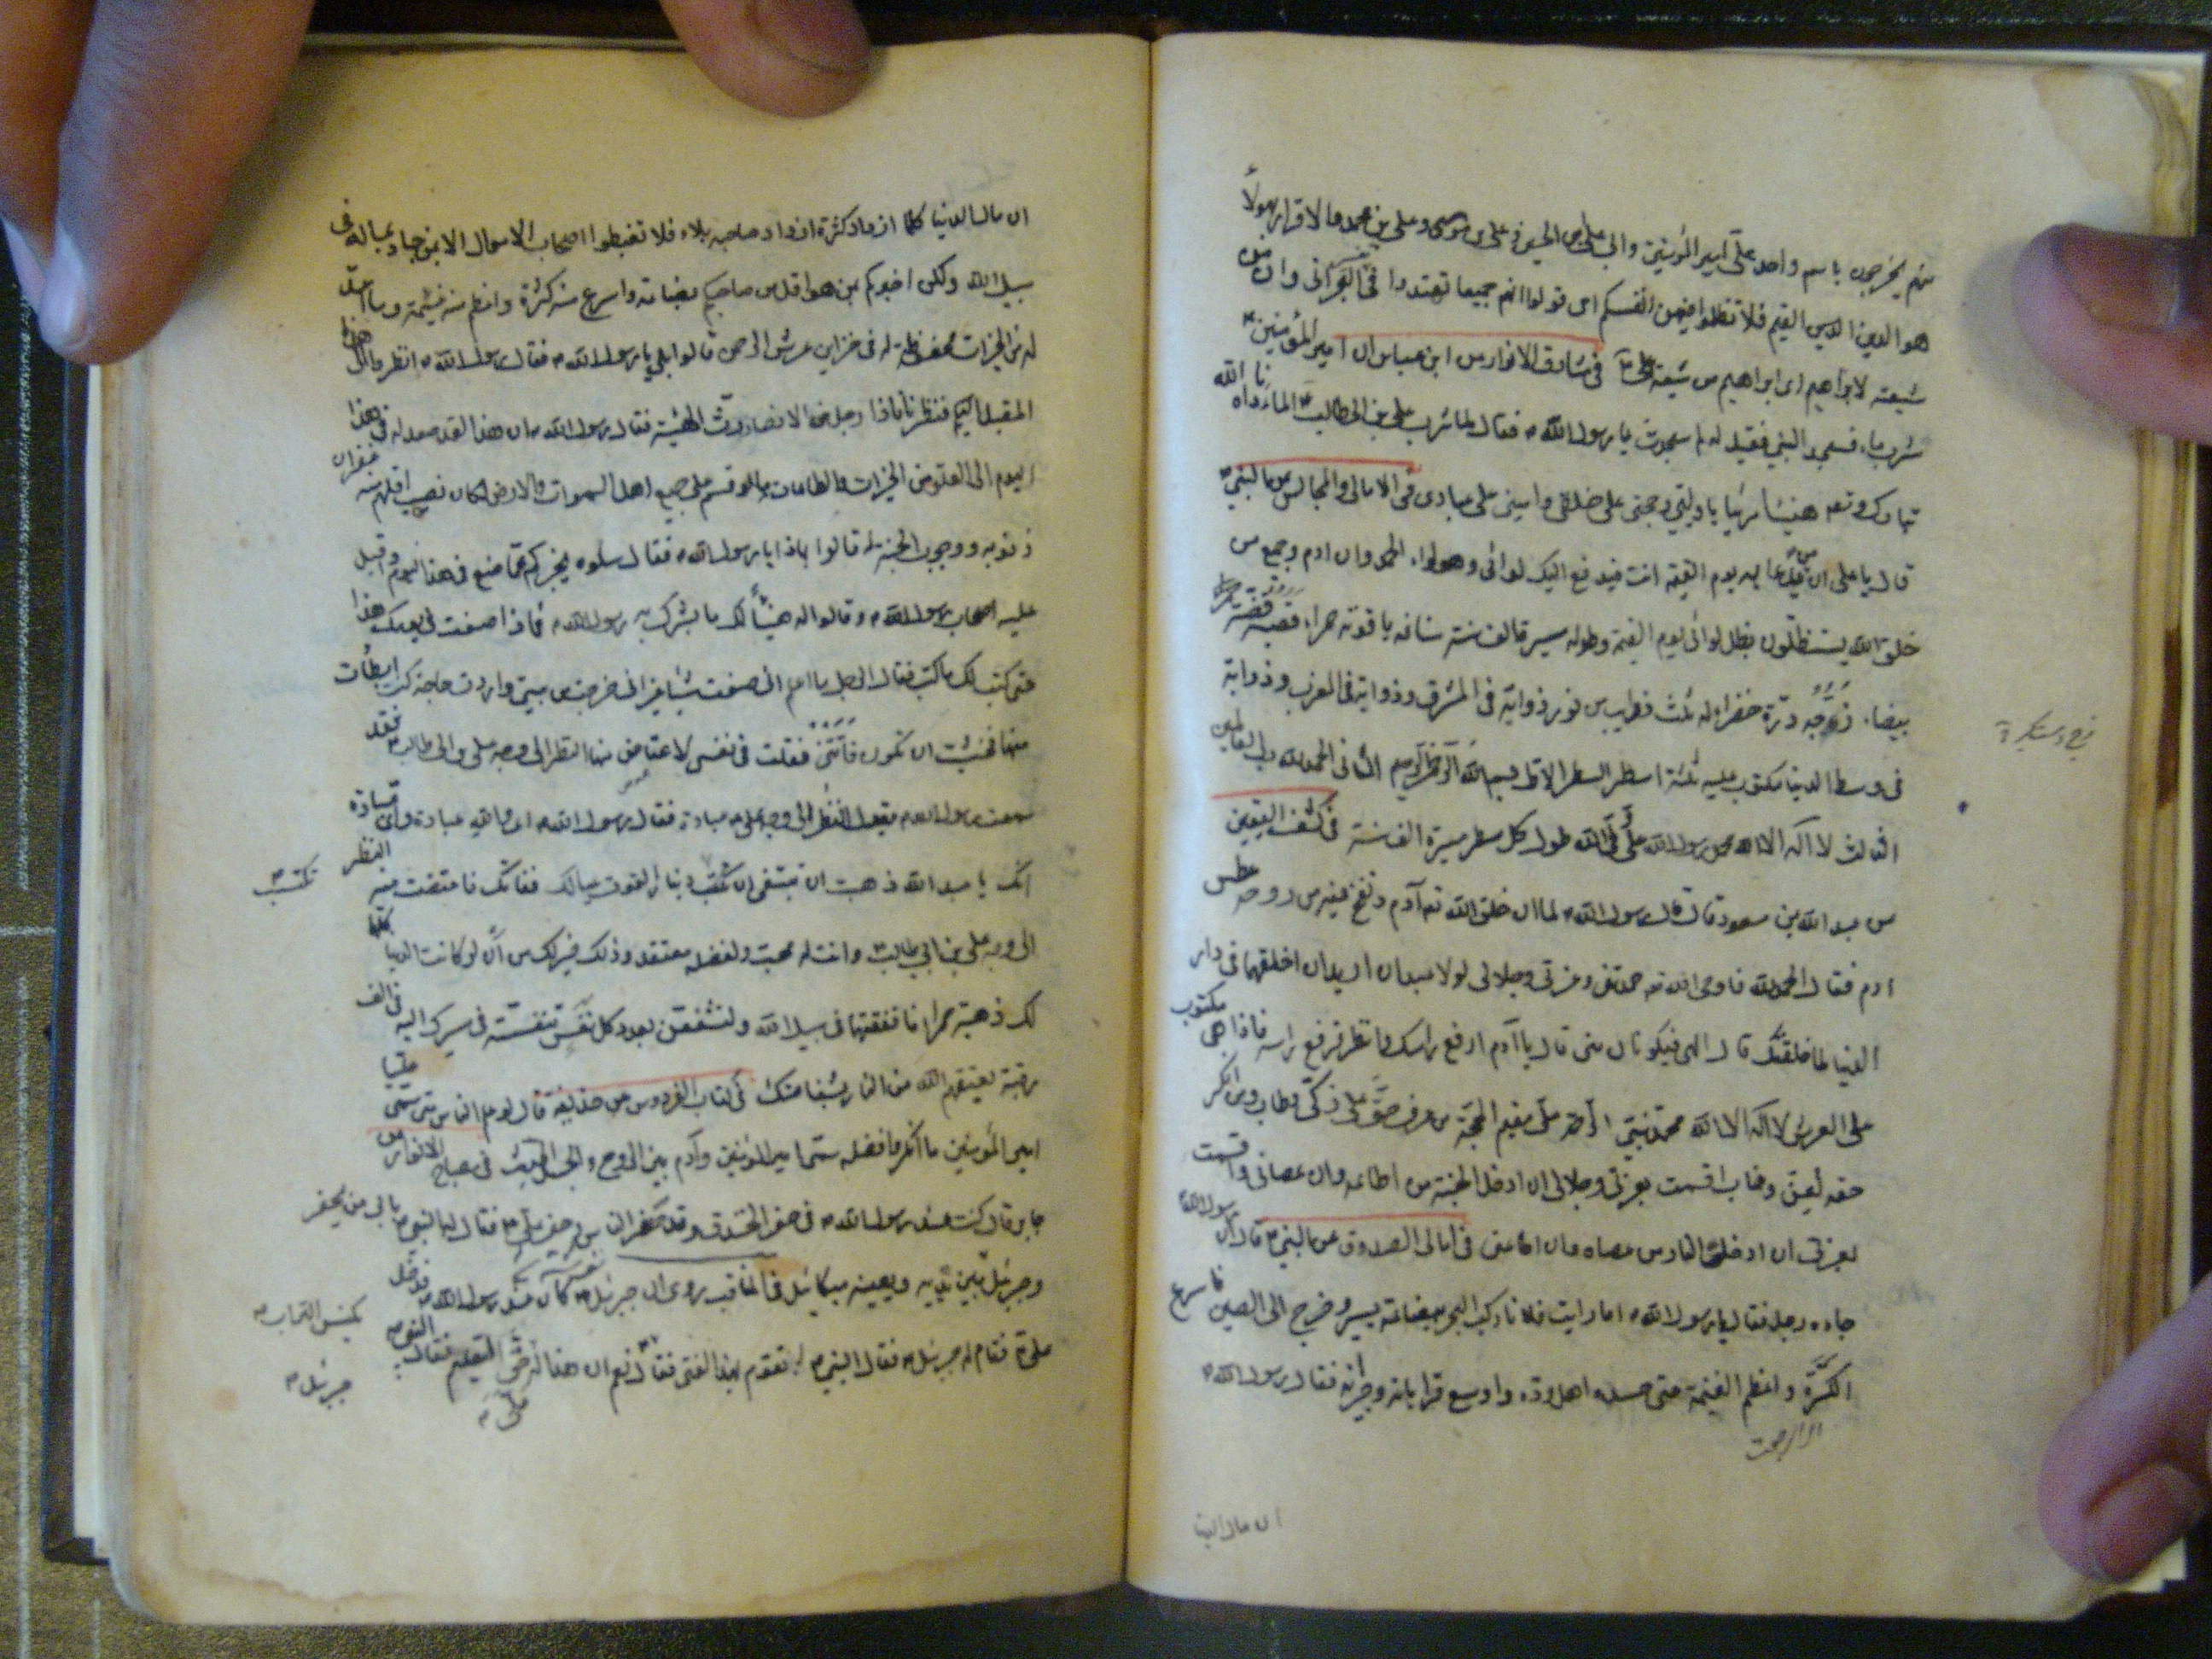 منهم يخرجون باسم واحد علي امير المؤمنين والى علي بن الحسين وعلي بن موسى وعلي بن محمد والاقرار بهؤلاء
هو الدين الدين القيم فلا تظلموا فيهن انفسكم اى قولوا انهم جميعا تهتدوا وان من
شيعته لابراهيم اى ابراهيم من شيعة علي في مشارق الانوار من ابن عباس ان امير المؤمنين
شرب ماء فسجد النبي فقيل له لم سجدت يا رسول الله فقال لما شرب علي بن ابي طالب الماء ناداه الله
تبارك وتعه هنيئا مريئا يا وليي وحجتي على خلقى واميني على عبادى في الامالي والمجالس من النبي
قال يا على ان من يدعا به يوم القيمة انت فيدفع اليك لوائى وهو لواء الحمد وان ادم وجميع من
خلق الله يستظلون بظل لوائى يوم القيمة وطوله مسيرة الف سنة سنانه ياقوتة حمراء قصبته فضة
بيضاء زجه درة خضراء له ثلث ذوايب من نور ذوابة فى المشرق وذوابة فى المغرب وذوابة
فى وسط الدنيا مكتوب عليه ثلثة اسطر السطر الاول بسم الله الرحمن الرحيم الثانى الحمد لله رب العالمين
الثالث لا اله الا الله محمد رسول الله علي ولي الله طول كل سطر مسيرة الف سنة فى كشف اليقين
من عبد الله بن مسعود قال قال رسول الله لما ان خلق الله تعه آدم ونفخ فيه من روحه عطس
ادم فقال الحمد لله فاوحى الله تعه حمدتنى وعزتى وجلالى لولا عبدان اريد ان اخلقهما فى دار
الدنيا لما خلقتك قال الهى فيكونان منى قال يا آدم ارفع راسك وانظر فرفع راسه فاذا هى مكتوب
على العرش لا اله الا الله محمد نبي الرحمة علي مقيم الحجة من عرف حق علي ذكى وطاب ومن انكر
حقه لعن وخاب اقسمت بعزتى وجلالى ان ادخل الجنة من اطاعه وان عصانى واقسمت
بعزتى ان ادخل النار من عصاه وان اطاعنى فى امالى الصدوق من النبي قال ان رسول الله
جاءه رجل فقال يا رسول الله اما رايت فلانا ركب البحر ببضاعة يسير وخرج الى الصين فاسرع
الكرة واعظم الغنيمة حتى حسده اهل وده واوسع قراباته وجيرانه فقال رسول الله
ان مال الدنيا
ان مال الدنيا كلما ازداد كثرة ازداد صاحبه بلاء فلا تغبطوا اصحاب الاموال الا بمن جاد بماله فى
سبيل الله ولكن اخبركم بمن هو اقل من صاحبكم بضاعة واسرع منه كرة واعظم منه غنيمة وما اعد
له من الخيرات محفوظة له فى خزاين عرش الرحمن قالوا بلى يا رسول الله فقال رسول الله انظروا الى هذا
المقبل اليكم فنظرنا فاذا رجل من الانصار رث الهيئة فقال رسول الله ان هذا لقد صعد له فى هذا
اليوم الى العلو من الخيرات والطاعات ما لو قسم على جميع اهل السموات والارض لكان نصيب اقلهم منه غفران
ذنوبه ووجوب الجنة له قالوا بماذا يا رسول الله فقال سلوه يخبركم عما صنع فى هذا اليوم واقبل
عليه اصحاب رسول الله وقالوا له هنيئا لك ما بشرك به رسول الله فماذا صنعت فى يومك هذا
حتى كتب لك ما كتب فقال الرجل ما اعلم انى صنعت شيئا غير انى خرجت من بيتى واردت حاجة كنت ابطأت
عنها فخشيت ان تكون فاتتنى فقلت فى نفسى لاعتاضن منها النظر الى وجه على بن ابى طالب فقد
سمعت رسول الله يقول النظر الى وجه على عبادة فقال رسول الله اى والله عبادة واى عبادة
انك يا عبد الله ذهبت ان تبتغى ان تكتسب دينارا لقوت عيالك ففاتك فاعتضت منه النظر
تكتسب
الى وجه على بن ابي طالب وانت له محب ولفضله معتقد وذلك خير لك من ان لو كانت الدنيا كلها
لك ذهبة حمراء فانفقتها فى سبيل الله ولتشفعن بعدد كل نفس تنفسته فى سيرك اليه فى الف
رقبة يعتقهم الله من النار بشفاعتك فى كتاب الفردوس عن حذيفة قال لو علم الناس متى سمى عليا
امير المؤمنين ما انكروا فضله سمى امير المؤمنين وآدم بين الروح والجسد الحديث فى مصباح الانوار من
جابر قال كنت عند رسول الله فى حفر الخندق وقد حفر الناس وحفر علي فقال له النبي بابى من يحفر
وجبرئيل بين يديه ويعينه ميكائيل فى المناقب روى ان جبرئيل كان عند رسول الله فدخل
يكنس التراب
علي فقام له جبرئيل فقال النبي تقوم لهذا الفتى فقال نعم ان هذا له حق التعليم فقال النبي
جبرئيل